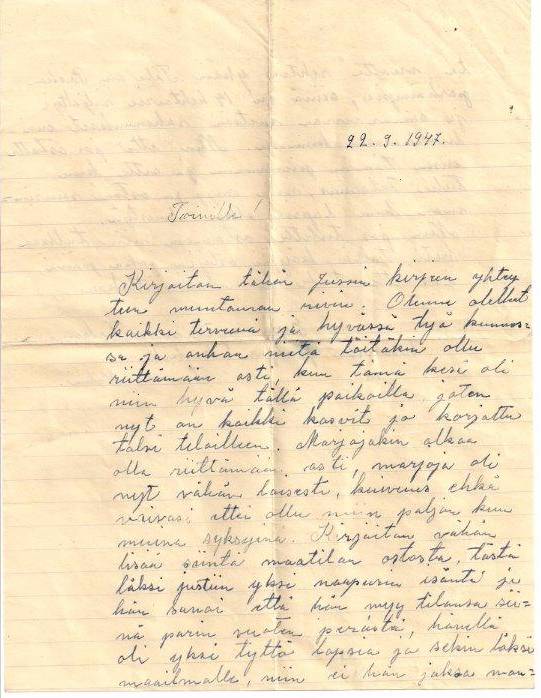 22.9.1947.
Toinille!
Kirjoitan tähän Jussin kirjeen yhtey
teen muutaman rivin. Olemme olleet
kaikki terveenä ja hyvässä työ kunnos-
sa ja onhan niitä töitäkin ollu
riittämään asti, kun tämä kesä oli
niin hyvä tällä paikoilla, joten
nyt on kaikki kasvit jo korjattu
talvi teloilleen. Marjojakin alkaa
olla riittämään asti, marjoja oli
nyt vähän laisesti, kuivuus ehkä
vaivasi ettei ollu niin paljon kun
muina syksyinä. Kirjoitan vähän
lisää siintä maatilan ostosta, tästä
läksi justiin yksi naapurin isäntä ja
hän sanoi että hän myy tilansa sii-
nä parin vuoden perästä, hänellä
oli yksi tyttö lapsia ja sekin läksi
maailmalle, niin ei hän jaksa